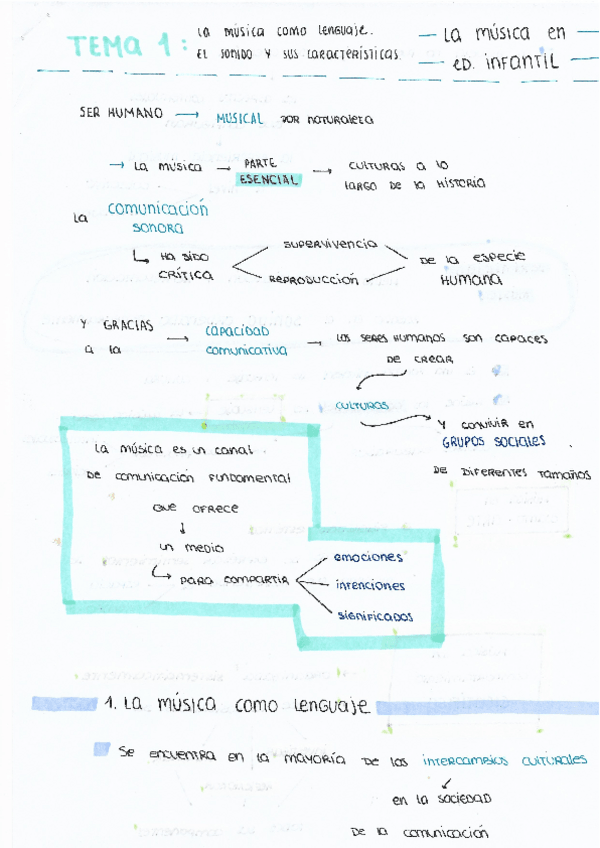 TEMA 1:
La música como lenguaje.
El sonido y sus características
— La música en —
ED. infantil —
SER HUMANO → MUSICAL por naturaleza
→ La música → PARTE ESENCIAL → CULTURAS a lo
largo de la historia
La comunicación
sonora
Ha sido
crítica
supervivencia
reproducción
de la especie
humana
Y GRACIAS
a la
→ capacidad
comunicativa
→ los seres humanos son capaces
de crear
culturas
Y convivir en
GRUPOS SOCIALES
de diferentes tamaños
La música es un canal
de comunicación fundamental
que ofrece
↓
un medio
para compartir
emociones
intenciones
significados
1. La música como lenguaje
Se encuentra en la mayoría de los intercambios culturales
en la sociedad
de la comunicación